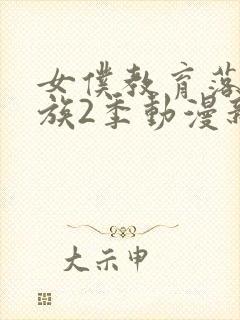 女僕教育落
族2季動漫新
大示申